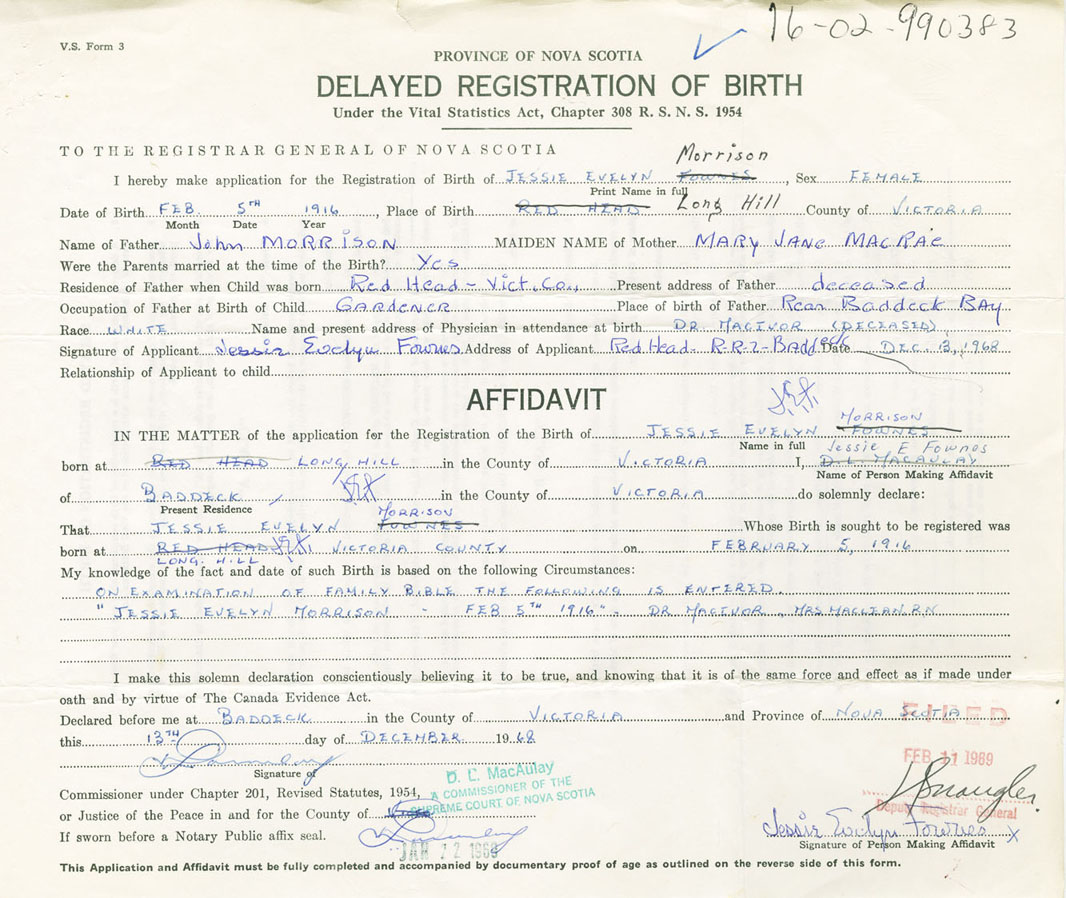 16-02-990383
V.S. Form 3
PROVINCE OF NOVA SCOTIA
DELAYED REGISTRATION OF BIRTH
Under the Vital Statistics Act, Chapter 308 R. S. N. S. 1954
TO THE REGISTRAR GENERAL OF NOVA SCOTIA
Morrison
I hereby make application for the Registration of Birth of JESSIE EVELYN FOWNES, Sex FEMALE
Print Name in full
Date of Birth FEB. 5TH 1916, Place of Birth RED HEAD Long Hill County of VICTORIA
Month Date Year
Name of Father John MORRISON MAIDEN NAME of Mother MARY JANE MACRAE
Were the Parents married at the time of the Birth? Yes
Residence of Father when Child was born Red Head - Vict. Co., Present address of Father deceased
Occupation of Father at Birth of Child GARDENER Place of birth of Father Rear Baddeck BAY
Race WHITE Name and present address of Physician in attendance at birth DR MACIVOR (DECEASED)
Signature of Applicant Jessie Evelyn Fownes Address of Applicant Red Head- R-R-2- Baddeck Date DEC. 13, 1968
Relationship of Applicant to child
AFFIDAVIT
J.E.F.
MORRISON
IN THE MATTER of the application for the Registration of the Birth of JESSIE EVELYN FOWNES
Name in full Jessie E Fownes
born at RED HEAD LONG HILL in the County of VICTORIA I, D. L. MACAULAY
Name of Person Making Affidavit
of BADDECK J.E.F. in the County of VICTORIA do solemnly declare:
Present Residence
MORRISON
That JESSIE EVELYN FOWNES Whose Birth is sought to be registered was
born at RED HEAD J.E.F. VICTORIA COUNTY on FEBRUARY 5, 1916
LONG HILL
My knowledge of the fact and date of such Birth is based on the following Circumstances:
ON EXAMINATION OF FAMILY BIBLE THE FOLLOWING IS ENTERED.
"JESSIE EVELYN MORRISON - FEB 5TH 1916". DR MACIVOR, MRS. MACLEAN. R.N.
I make this solemn declaration conscientiously believing it to be true, and knowing that it is of the same force and effect as if made under
oath and by virtue of The Canada Evidence Act.
Declared before me at BADDECK in the County of VICTORIA and Province of NOVA SCOTIA
FILED
this 13TH day of DECEMBER 1968
FEB 11 1969
Signature of
D. L. MacAulay
A COMMISSIONER OF THE
SUPREME COURT OF NOVA SCOTIA
Commissioner under Chapter 201, Revised Statutes, 1954,
or Justice of the Peace in and for the County of
Deputy Registrar General
If sworn before a Notary Public affix seal.
JAN 22 1969
Jessie Evelyn Fownes X
Signature of Person Making Affidavit
This Application and Affidavit must be fully completed and accompanied by documentary proof of age as outlined on the reverse side of this form.